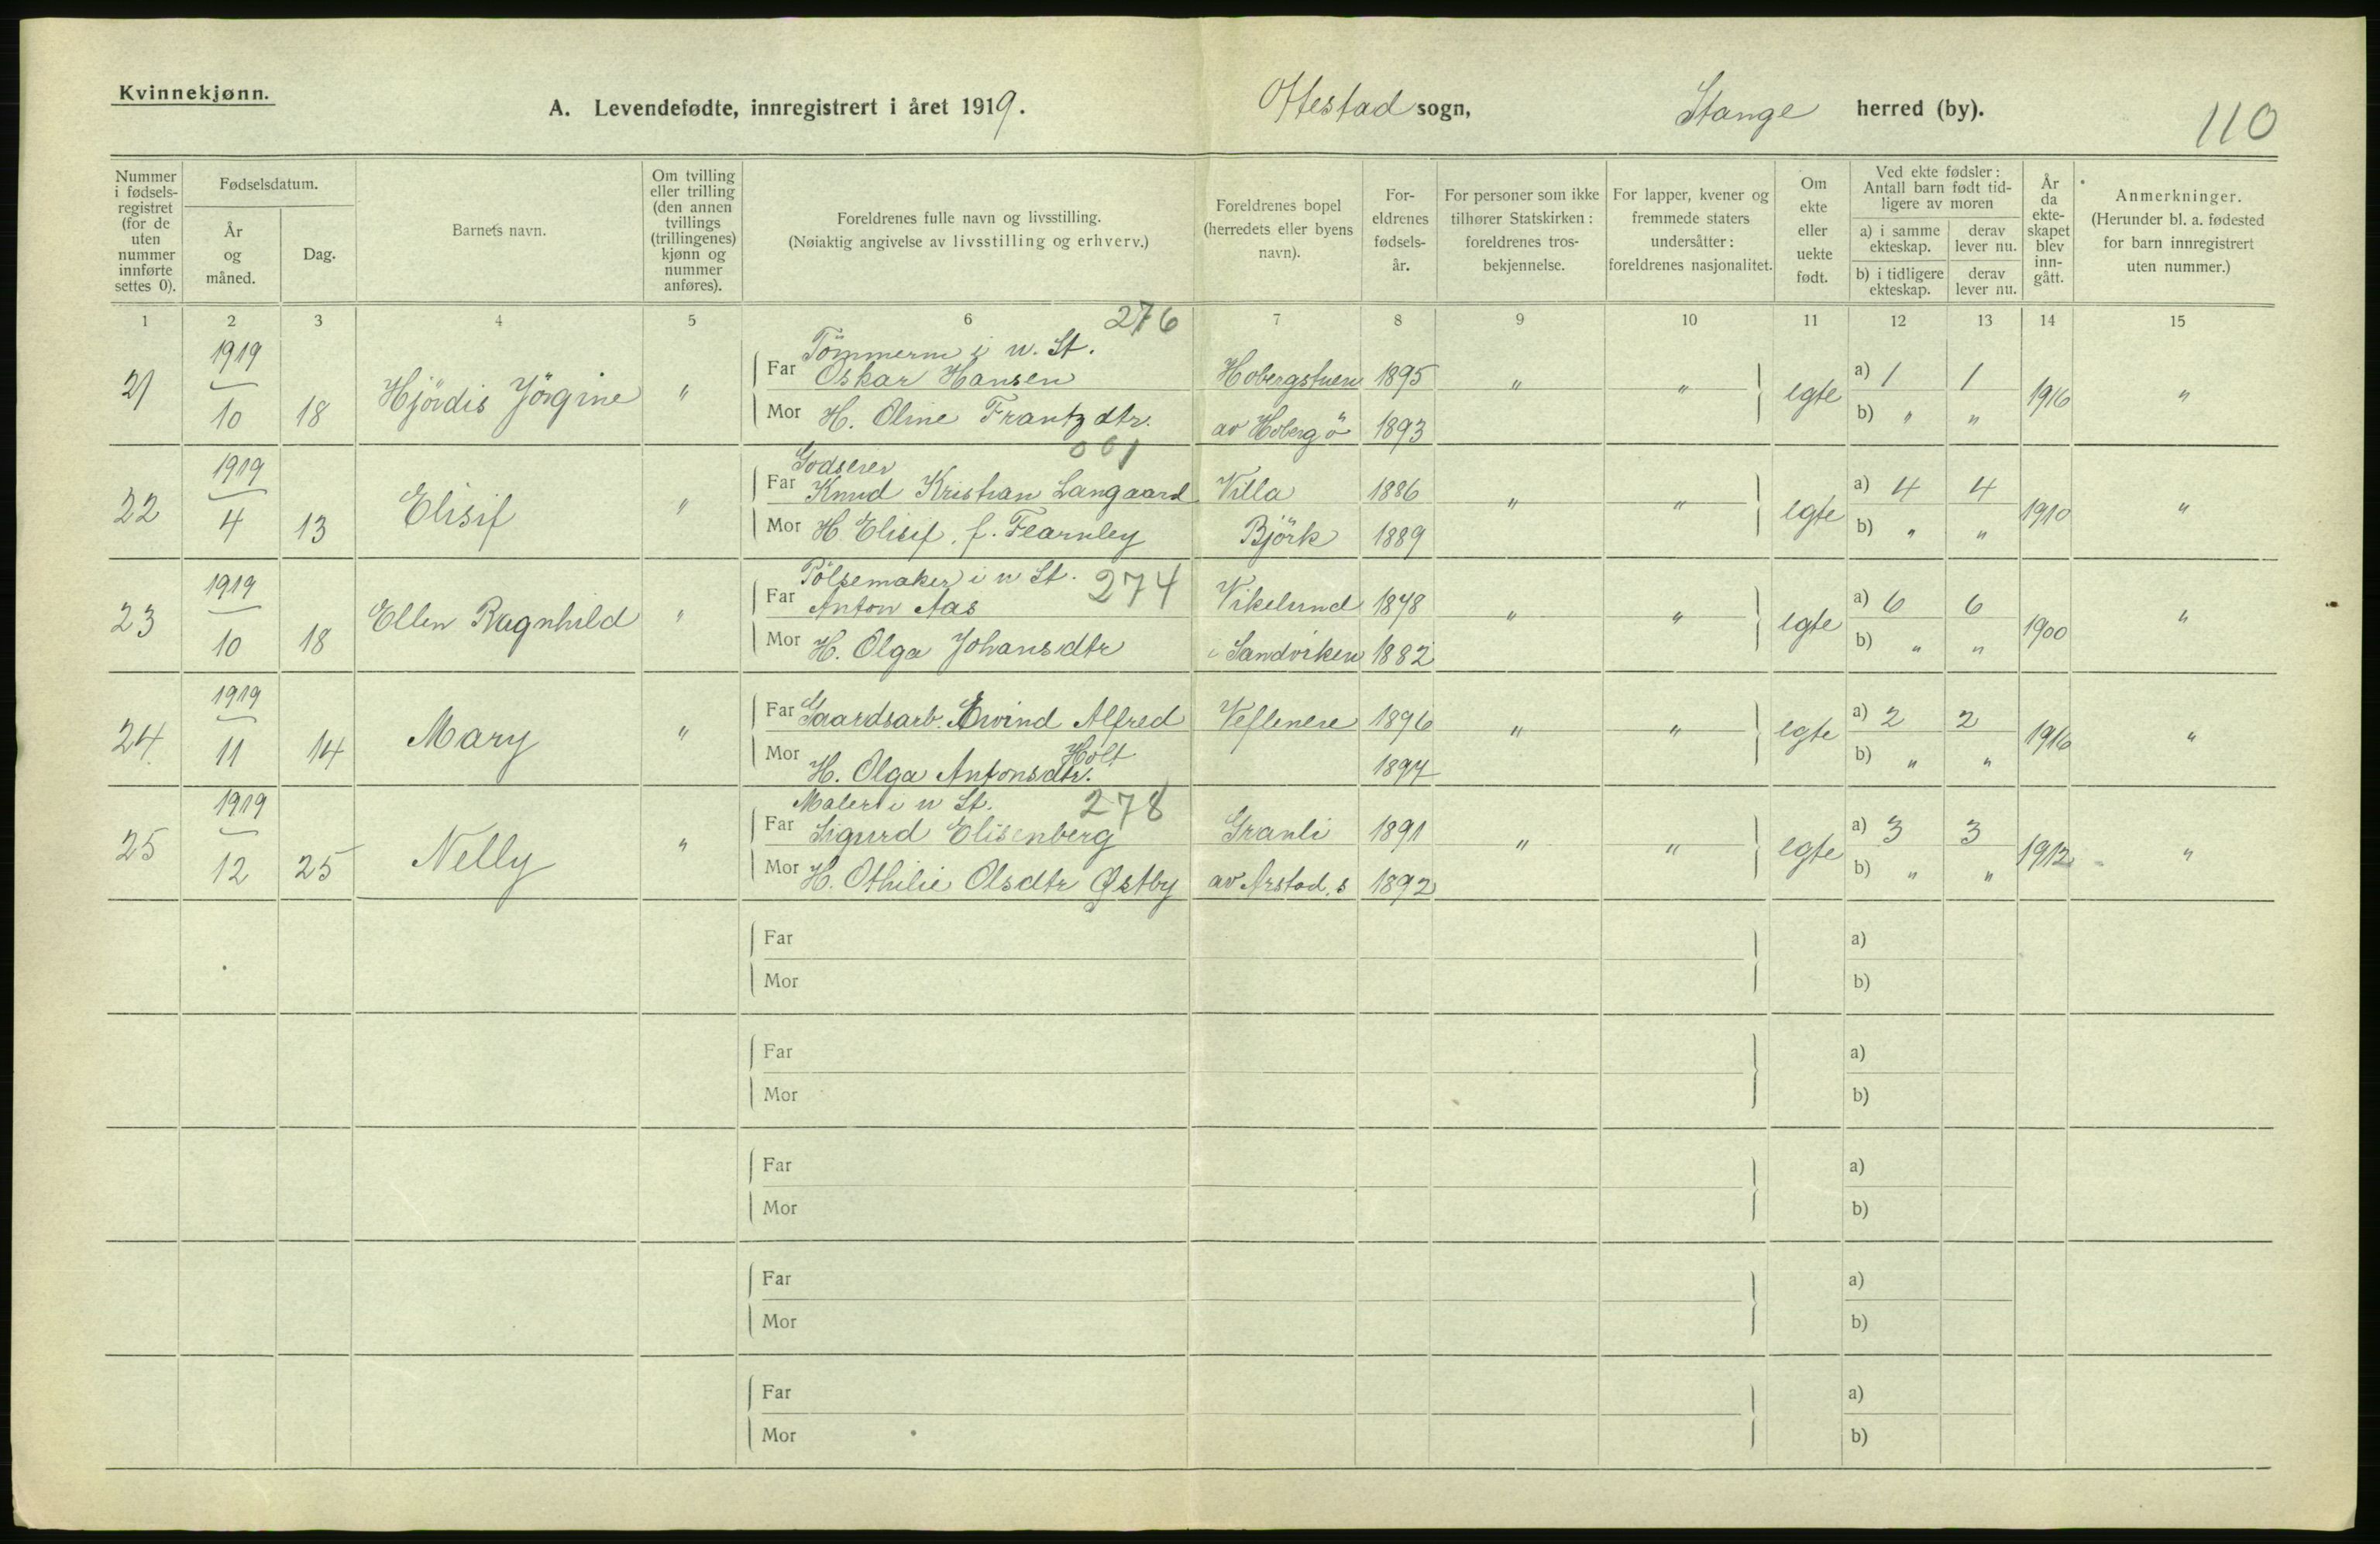 Kvinnekjønn.
A. Levendefødte, innregistrert i året 1919. Ottestad sogn, Stange herred (by). 110
Nummer i fødsels-registret (for de uten nummer innførte settes 0).
Fødselsdatum.
År og måned.
Dag.
Barnets navn.
Om tvilling eller trilling (den annen tvillings (trillingenes) kjønn og nummer anføres).
Foreldrenes fulle navn og livsstilling.
(Nøiaktig angivelse av livsstilling og erhverv.)
Foreldrenes bopel (herredets eller byens navn).
For-eldrenes fødsels-år.
For personer som ikke tilhører Statskirken: foreldrenes tros-bekjennelse.
For lapper, kvener og fremmede staters undersåtter: foreldrenes nasjonalitet.
Om ekte eller uekte født.
Ved ekte fødsler: Antall barn født tid-ligere av moren
a) i samme ekteskap.
derav lever nu.
b) i tidligere ekteskap.
derav lever nu.
År da ekte-skapet blev inn-gått.
Anmerkninger.
(Herunder bl. a. fødested for barn innregistrert uten nummer.)
1 2 3 4 5 6 7 8 9 10 11 12 13 14 15
276
1919 Tömmerm i w. St.
21 10 18 Hjördis Jörgine " Far Oskar Hansen Hobergstuen 1895 " " egte a) 1 1 1916 "
Mor H. Oline Frantz dtr. av Hoberg ö 1893 b) " "
061
1919 Godseier
22 4 13 Elisif " Far Knud Kristian Langaard Villa 1886 " " egte a) 4 4 1910 "
Mor H. Elisif, f. Fearnley Björk 1889 b) " "
1919 Pölsemaker i w St. 274
23 10 18 Ellen Ragnhild " Far Anton Aas Vikelund 1878 " " egte a) 6 6 1900 "
Mor H. Olga Johansdtr i Sandviken 1882 b) " "
1919
24 11 14 Mary " Far Gaardsarb. Eivind Alfred Holt 1896 " " egte a) 2 2 1916 "
Mor H. Olga Antonsdtr. 1894 b) " "
1919 Maler i w St. 278
25 12 25 Nelly " Far Sigurd Elisenberg Granli 1891 " " egte a) 3 3 1912 "
Mor H. Othilie Olsdtr Østby av Arstad, s 1892 b) " "
Far a)
Mor b)
Far a)
Mor b)
Far a)
Mor b)
Far a)
Mor b)
Far a)
Mor b)